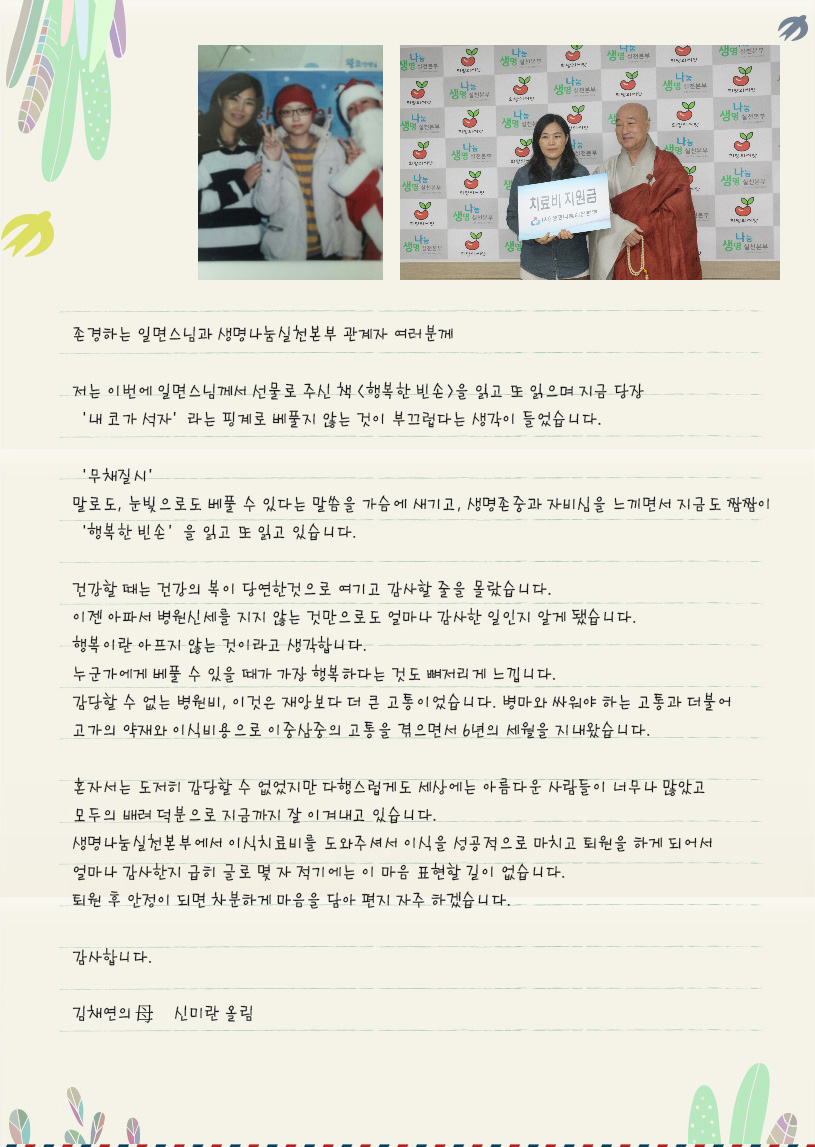 나눔
생명 실천본부
희망의 씨앗
치료비 지원금
존경하는 일면스님과 생명나눔실천본부 관계자 여러분께
저는 이번에 일면스님께서 선물로 주신 책 <행복한 빈손>을 읽고 또 읽으며 지금 당장
'내 코가 석자' 라는 핑계로 베풀지 않는 것이 부끄럽다는 생각이 들었습니다.
'무채질시'
말로도, 눈빛으로도 베풀 수 있다는 말씀을 가슴에 새기고, 생명존중과 자비심을 느끼면서 지금도 짬짬이
'행복한 빈손' 을 읽고 또 읽고 있습니다.
건강할 때는 건강의 복이 당연한것으로 여기고 감사할 줄을 몰랐습니다.
이젠 아파서 병원신세를 지지 않는 것만으로도 얼마나 감사한 일인지 알게 됐습니다.
행복이란 아프지 않는 것이라고 생각합니다.
누군가에게 베풀 수 있을 때가 가장 행복하다는 것도 뼈저리게 느낍니다.
감당할 수 없는 병원비, 이것은 재앙보다 더 큰 고통이었습니다. 병마와 싸워야 하는 고통과 더불어
고가의 약재와 이식비용으로 이중삼중의 고통을 겪으면서 6년의 세월을 지내왔습니다.
혼자서는 도저히 감당할 수 없었지만 다행스럽게도 세상에는 아름다운 사람들이 너무나 많았고
모두의 배려 덕분으로 지금까지 잘 이겨내고 있습니다.
생명나눔실천본부에서 이식치료비를 도와주셔서 이식을 성공적으로 마치고 퇴원을 하게 되어서
얼마나 감사한지 급히 글로 몇 자 적기에는 이 마음 표현할 길이 없습니다.
퇴원 후 안정이 되면 차분하게 마음을 담아 편지 자주 하겠습니다.
감사합니다.
김채연의 母 신미란 올림